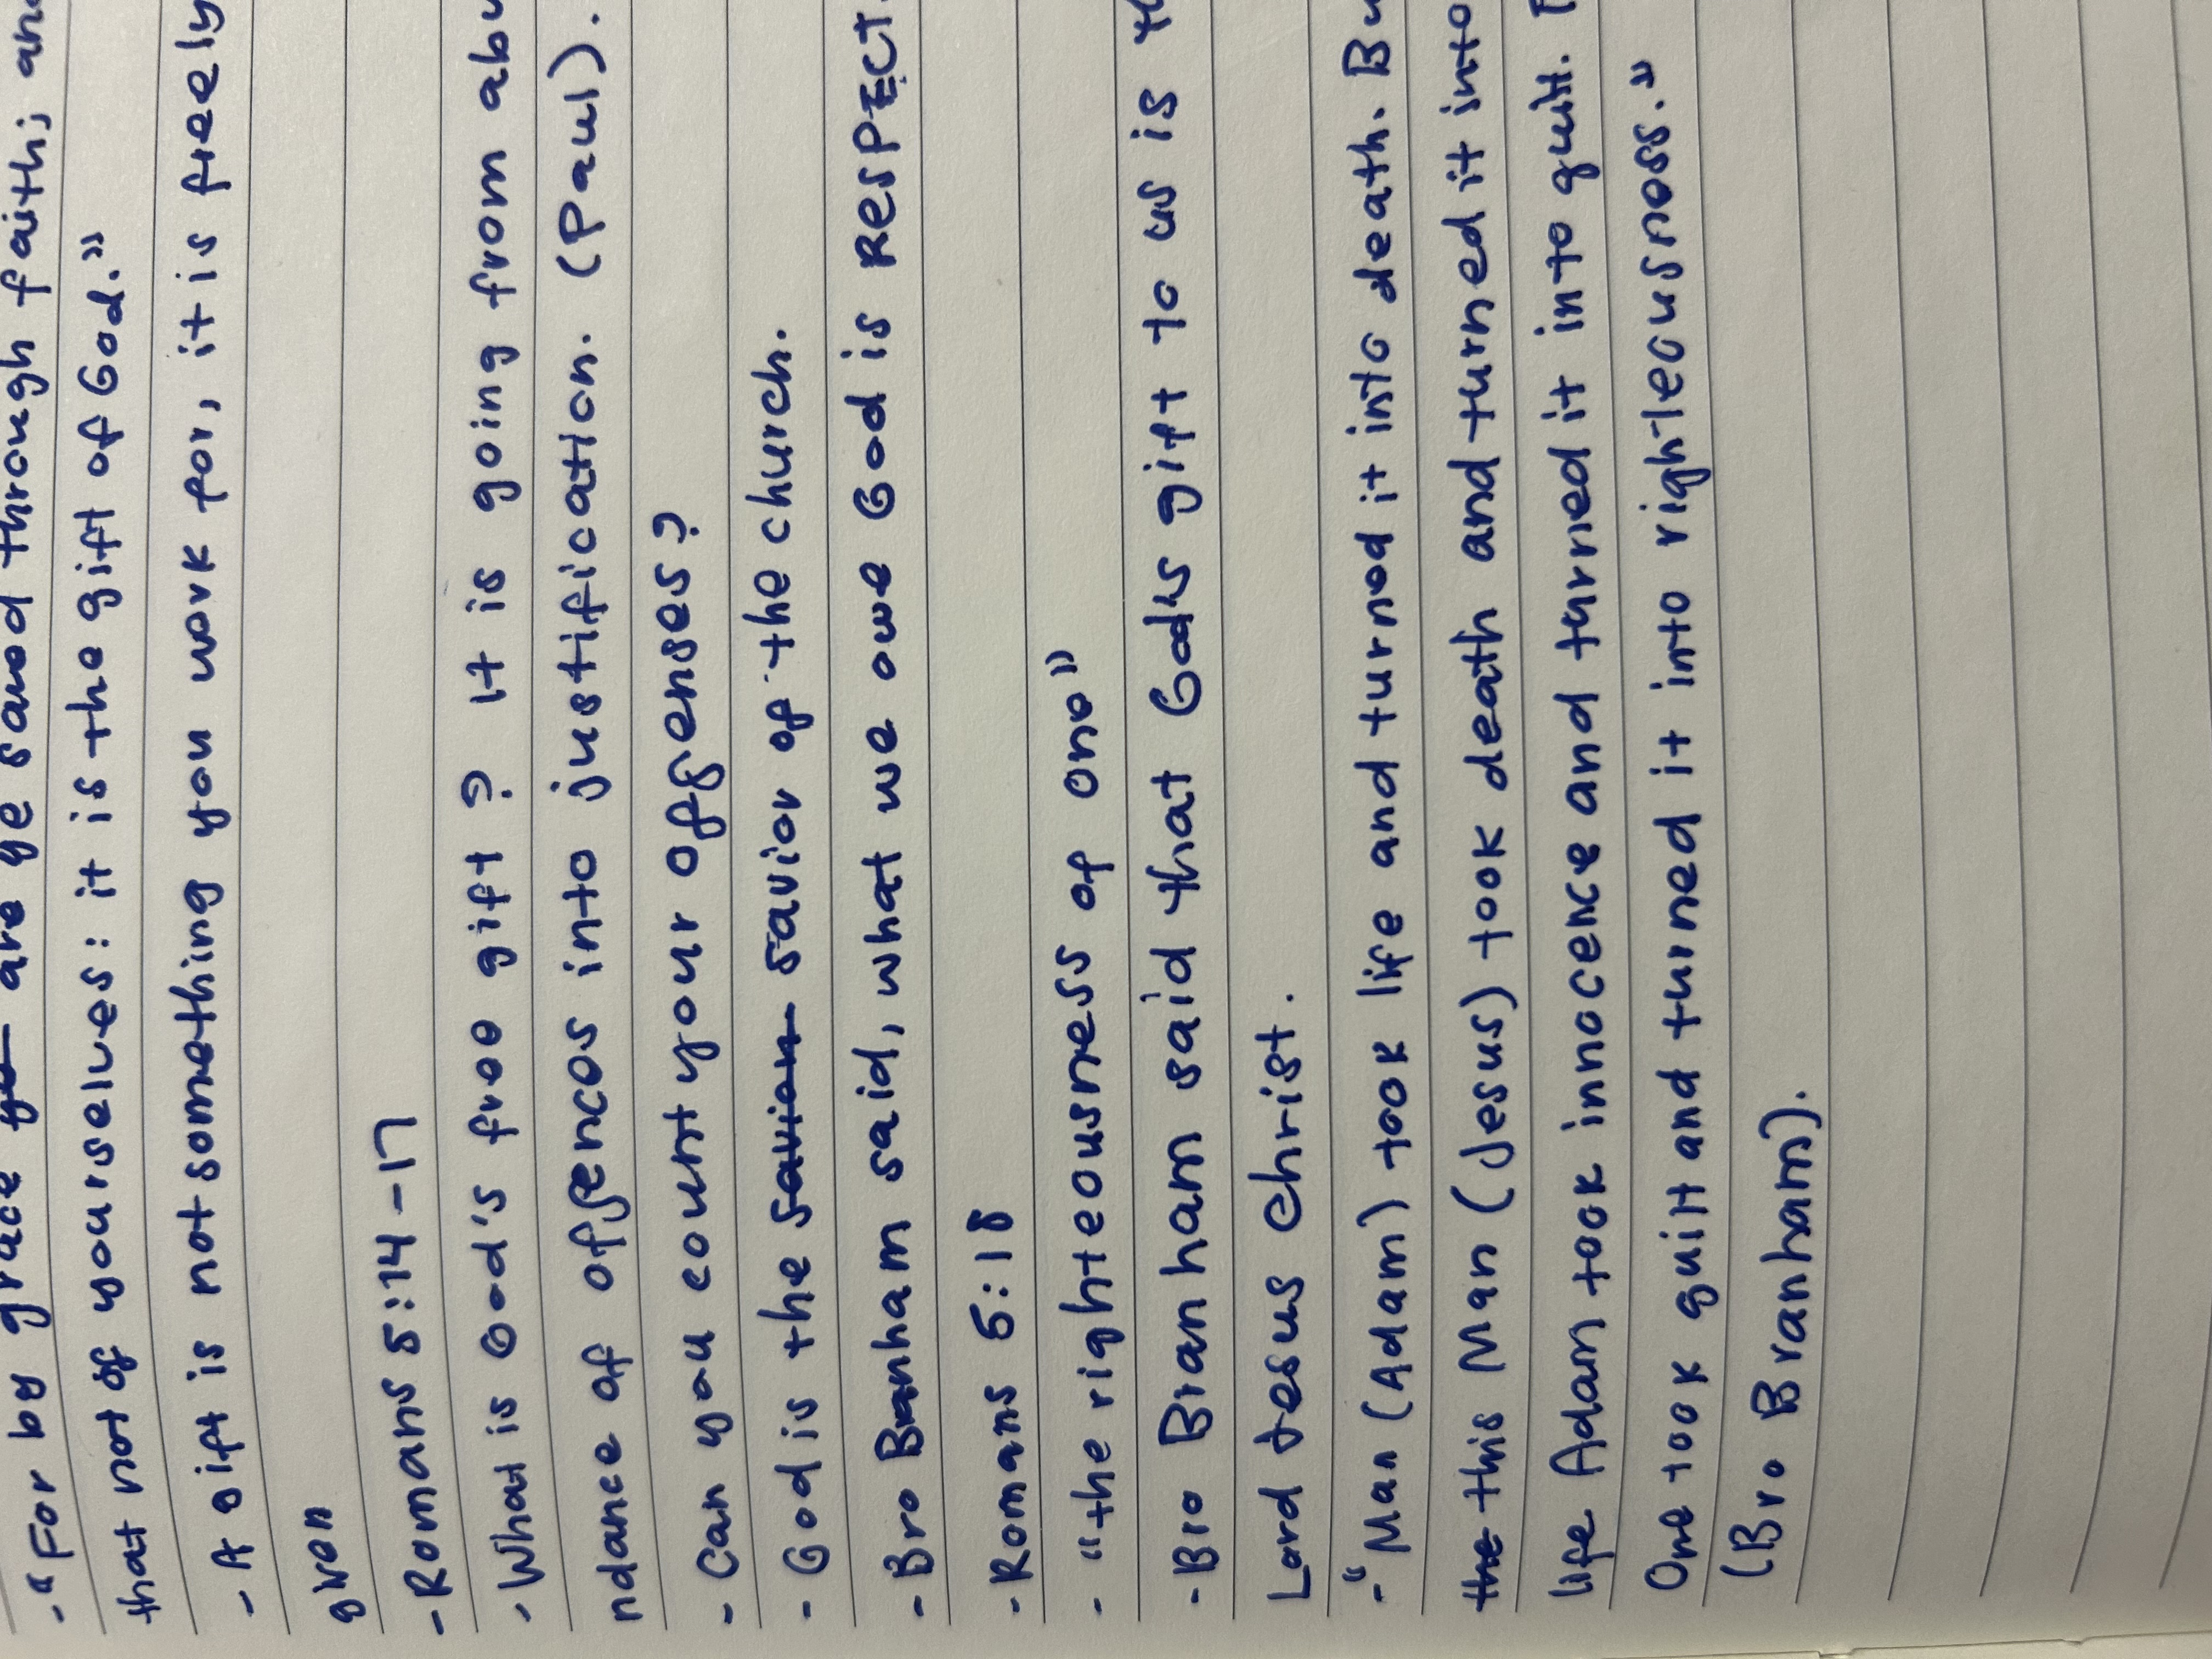 - "For by grace are ye saved through faith; and
that not of yourselves: it is the gift of God."
- A gift is not something you work for, it is freely
given
- Romans 5:14-17
- What is God's free gift? It is going from abu
ndance of offences into justification. (Paul).
- Can you count your offenses?
- God is the savior of the church.
- Bro Branham said, what we owe God is RESPECT.
- Romans 5:18
- "the righteousness of one"
- Bro Branham said that God's gift to us is th
Lord Jesus Christ.
- "Man (Adam) took life and turned it into death. Bu
the this Man (Jesus) took death and turned it into
life Adam took innocence and turned it into guilt.
One took guilt and turned it into righteousness."
(Bro Branham).